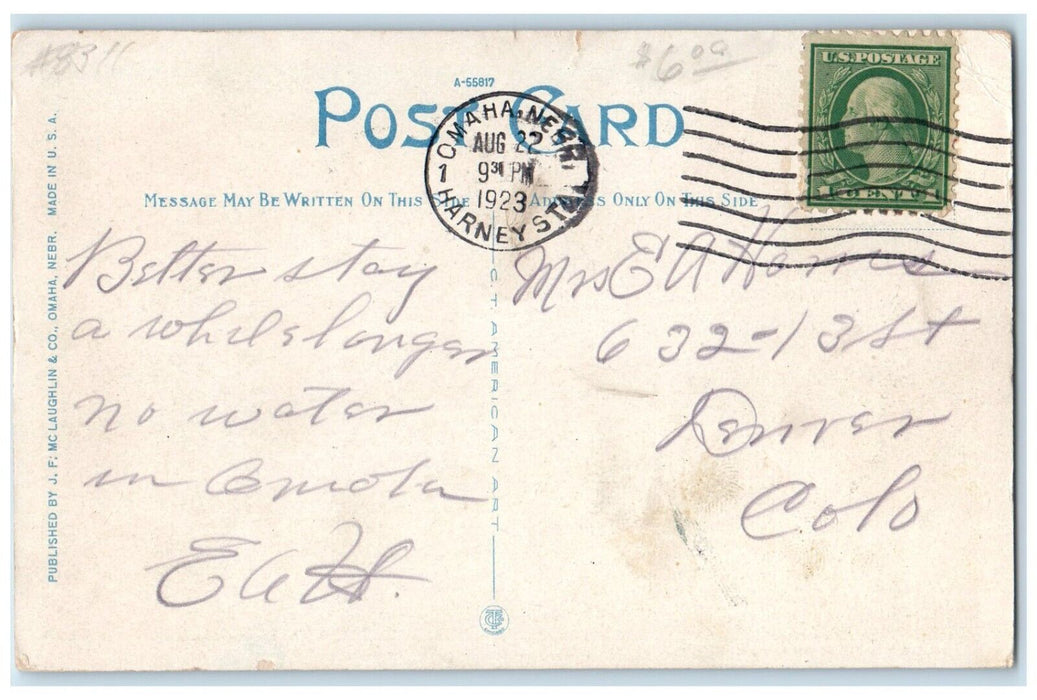 #8311
$6.00
A-55817
POST CARD
U.S. POSTAGE
OMAHA, NEBR.
AUG 22
9 30 PM
1923
1
HARNEY STA.
MESSAGE MAY BE WRITTEN ON THIS SIDE
ADDRESS ONLY ON THIS SIDE
Better stay
a while longer
no water
in Omaha
E A H.
Mrs E A Harris
632-13 St
Denver
Colo
C.T. AMERICAN ART
PUBLISHED BY J. F. MC LAUGHLIN & CO., OMAHA, NEBR. MADE IN U. S. A.